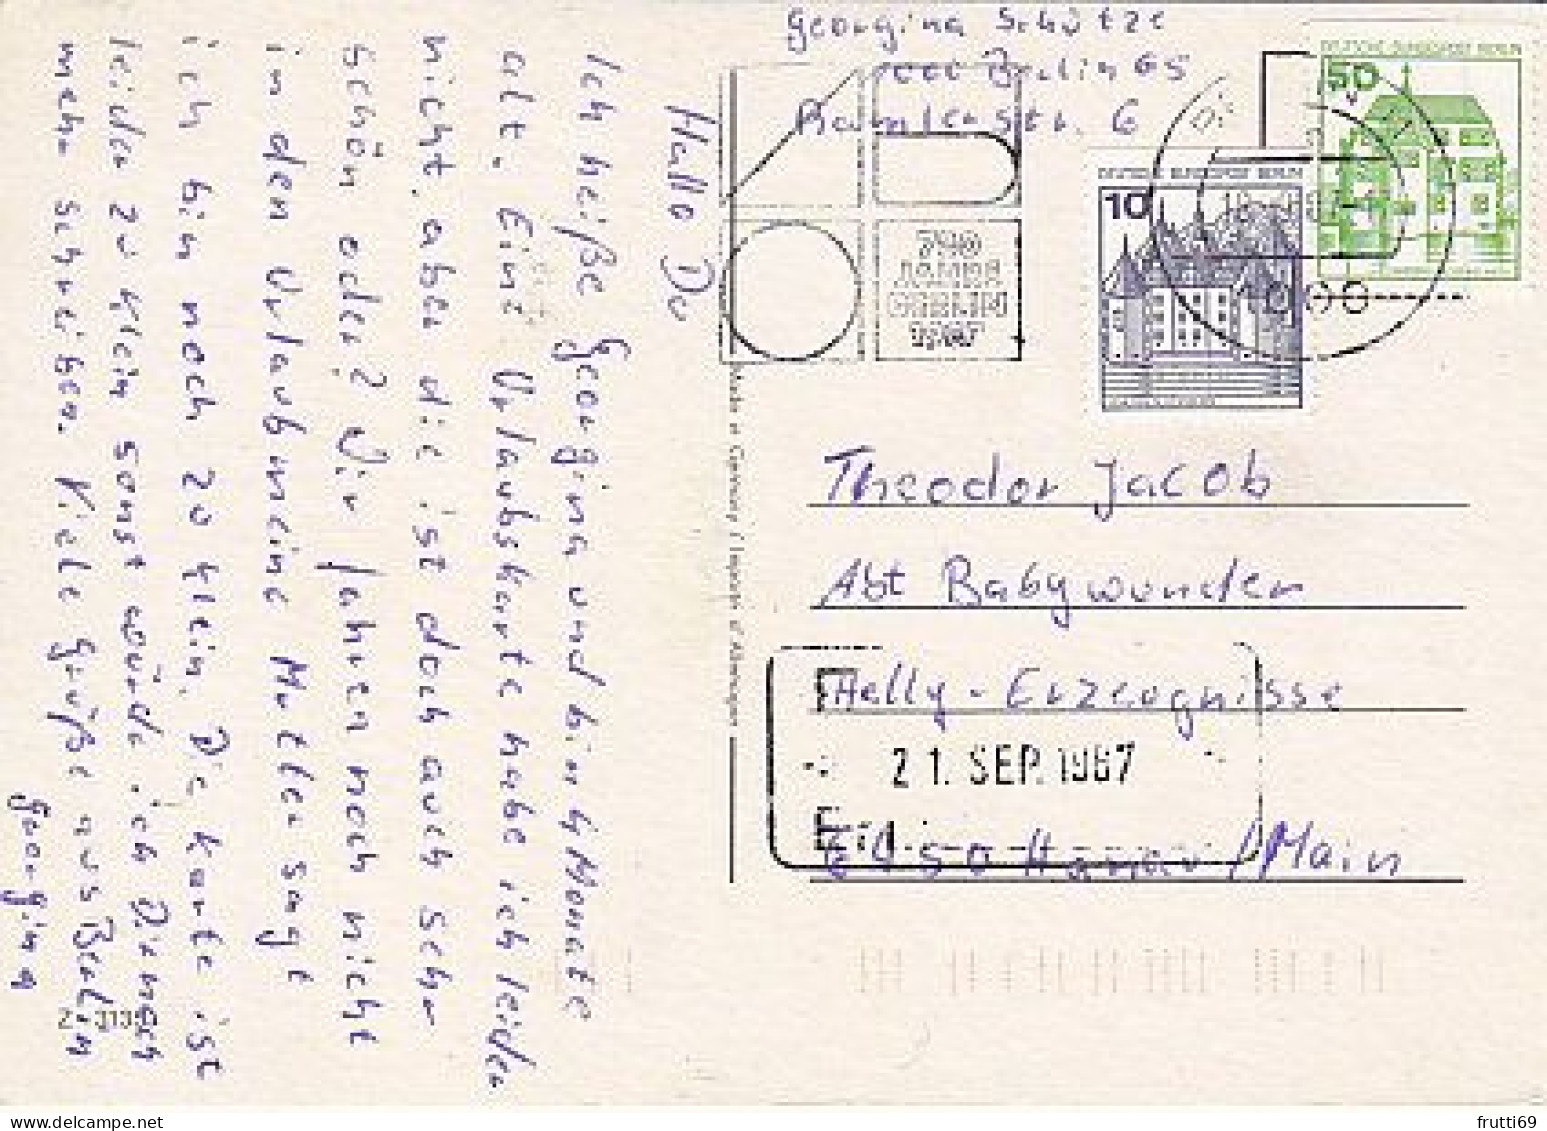 Georgina Schütze
1000 Berlin 65
6
DEUTSCHE BUNDESPOST BERLIN
50
DEUTSCHE BUNDESPOST BERLIN
10
1000
750
JAHRE
BERLIN
1987
Hallo Du
Ich heiße Georgina und bin 4 Monate
alt. Eine Urlaubskarte habe ich leider
nicht, aber die ist doch auch sehr
schön oder? Wir fahren noch nicht
in den Urlaub meine Mutter sagt
ich bin noch zo klein. Die Karte ist
leider zu klein sonst würde ich Dir noch
mehr schreiben. Viele Grüße aus Berlin
Georgina
Made in Germany / Importé d'Allemagne
Theodor Jacob
Abt Babywunder
Helly-Erzeugnisse
21. SEP. 1987
6450 Hanau/Main
frutti69